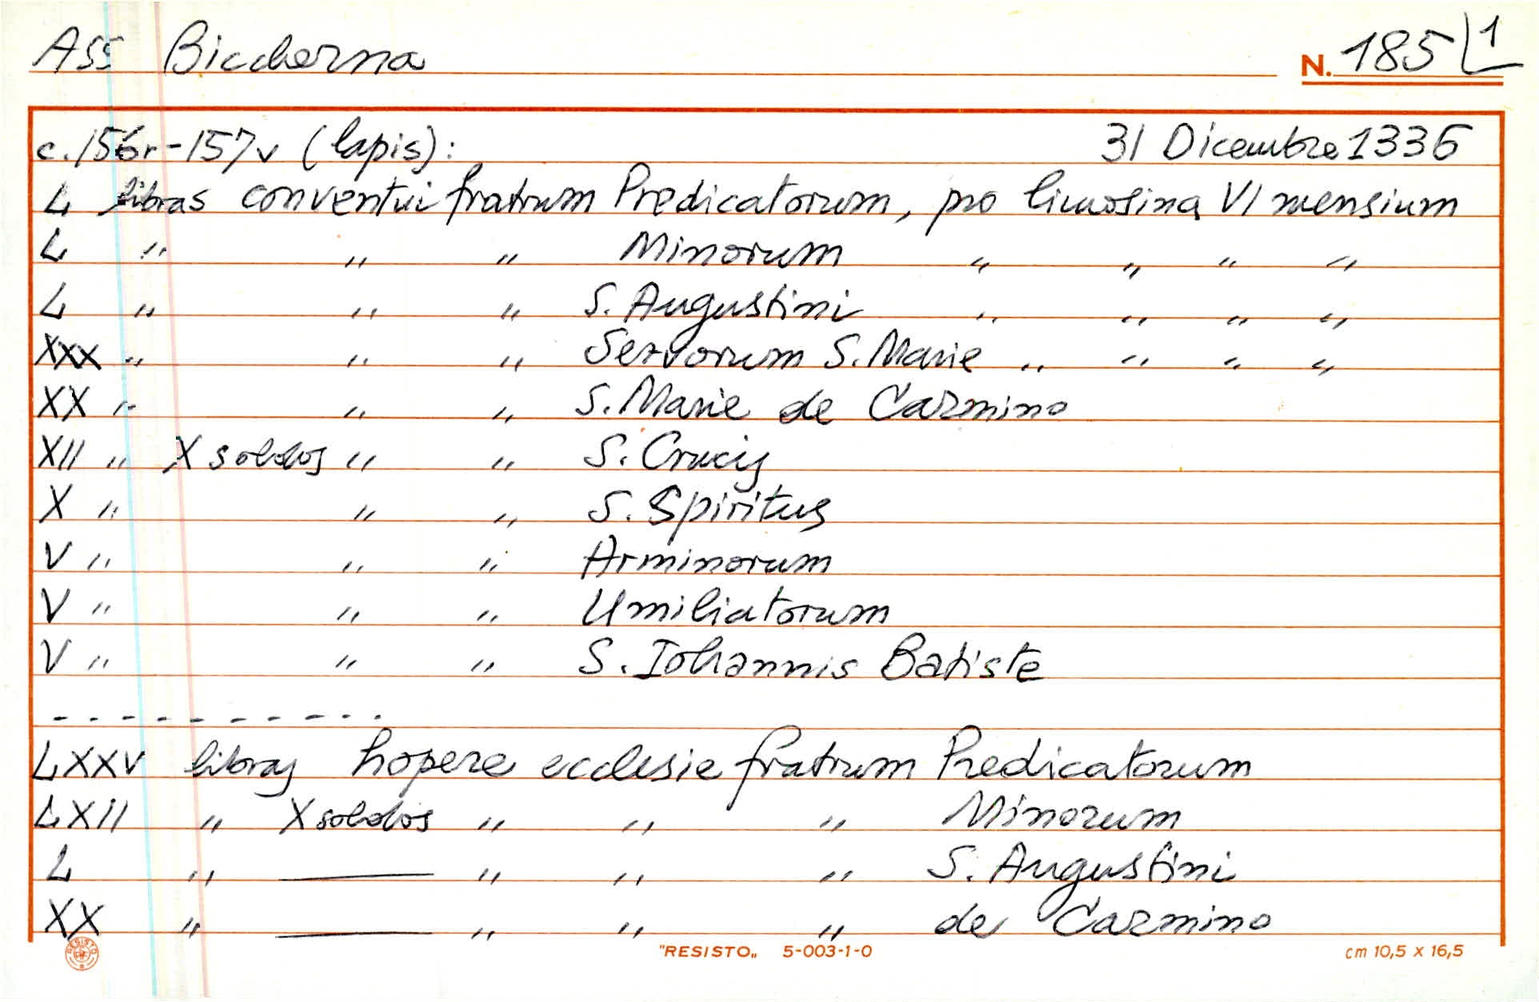 ASS Biccherna N. 185/1
c. 156r-157v (lapis): 31 Dicembre 1336
L libras conventui fratrum Predicatorum, pro limosina VI mensium
L " " " Minorum " " " "
L " " " S. Augustini " " " "
XXX " " " Servorum S. Marie " " " "
XX " " " S. Marie de Carmino
XII " X soldos " " S. Crucis
X " " " S. Spiritus
V " " " Arminorum
V " " " Umiliatorum
V " " " S. Iohannis Batiste
- - - - - - - - - -
LXXV libras hopere ecclesie fratrum Predicatorum
LXII " X soldos " " " Minorum
L " — " " " S. Augustini
XX " — " " " de Carmino
RESISTO "RESISTO„ 5-003-1-0 cm 10,5 x 16,5